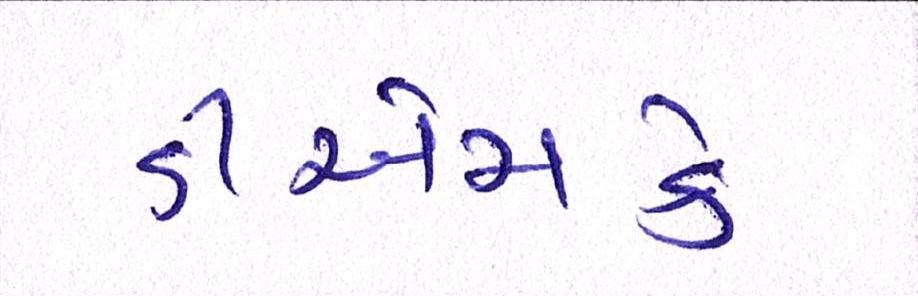 ડીએમકે